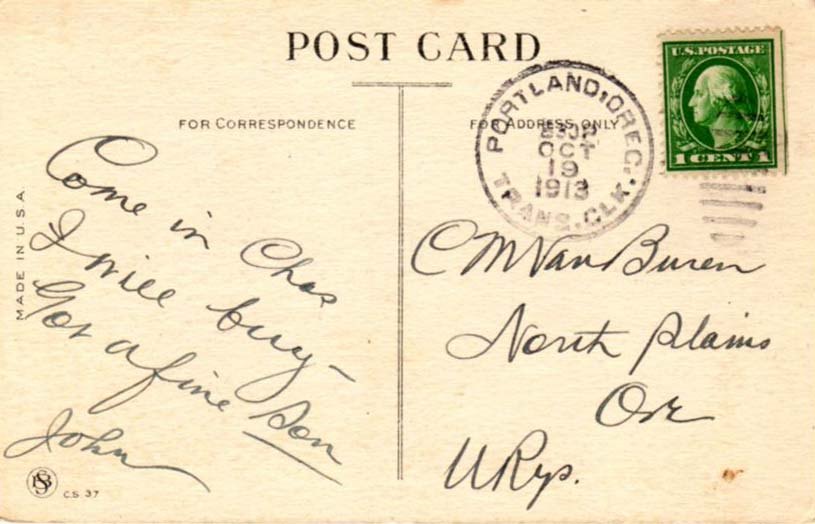 POST CARD
FOR CORRESPONDENCE
FOR ADDRESS ONLY
MADE IN U.S.A.
Come in Chas
I will buy—
Got a fine Son
John
C.S. 37
PORTLAND, OREG.
OCT
19
1913
TRANS. CLK.
U.S. POSTAGE
1 CENT 1
C M Van Buren
North Plains
Ore
U Rys.